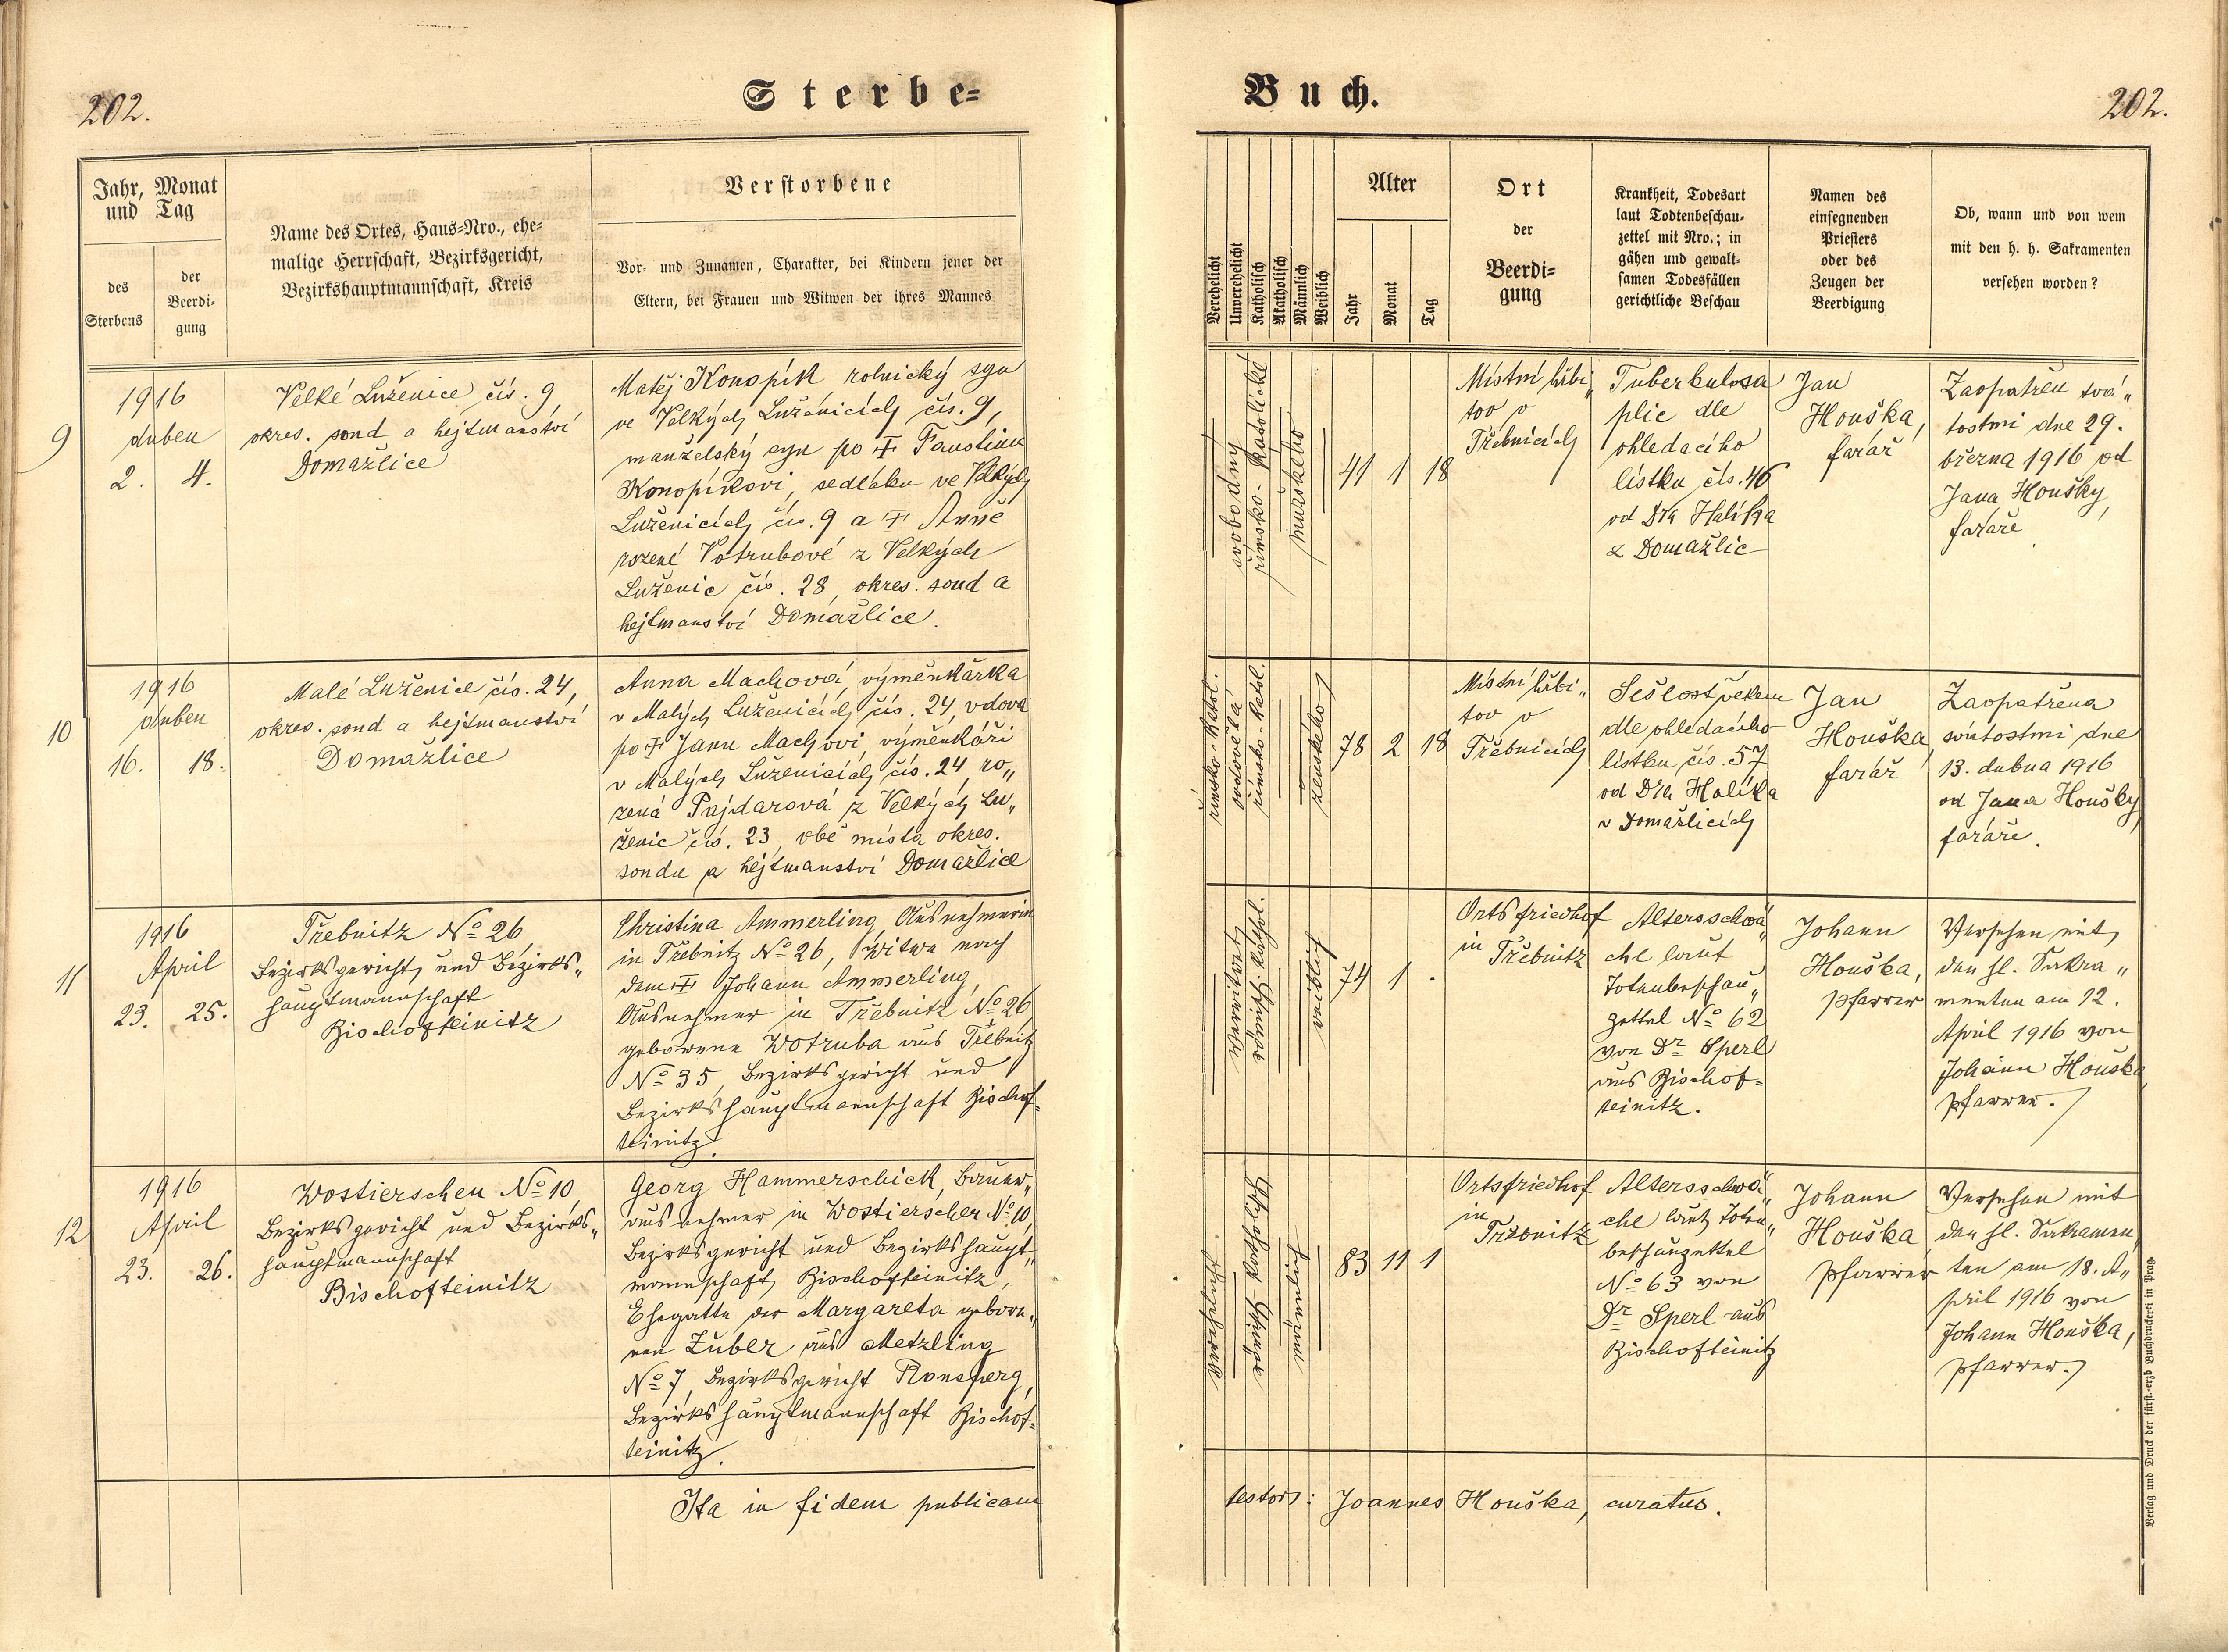 202.
Sterbe=
Buch.
202.
Jahr, Monat
und Tag
des
Sterbens
der
Beerdi-
gung
Name des Ortes, Haus-Nro., ehe-
malige Herrschaft, Bezirksgericht,
Bezirkshauptmannschaft, Kreis
Verstorbene
Vor- und Zunamen, Charakter, bei Kindern jener der
Eltern, bei Frauen und Witwen der ihres Mannes
Verehelicht
Unverehelicht
Katholisch
Akatholisch
Männlich
Weiblich
Alter
Jahr
Monat
Tag
Ort
der
Beerdi-
gung
Krankheit, Todesart
laut Todtenbeschau-
zettel mit Nro.; in
gähen und gewalt-
samen Todesfällen
gerichtliche Beschau
Namen des
einsegnenden
Priesters
oder des
Zeugen der
Beerdigung
Ob, wann und von wem
mit den h. h. Sakramenten
versehen worden?
9
1916
duben
2. 4.
Velké Luženice čís. 9
okres. soud a hejtmanství
Domažlice
Matěj Konopík rolnický syn
ve Velkých Luženicích čís. 9,
manželský syn po ☩ Faustinu
Konopíkovi, sedláku ve Velkých
Luženicích čís. 9 a ☩ Anně
rozené Votrubové z Velkých
Luženic čís. 28, okres. soud a
hejtmanství Domažlice.
svobodný
římsko-katolické
mužského
41 1 18
Místní hřbi„
tov v
Třebnicích
Tuberkulosa
plic dle
ohledacího
lístku čís. 46
od Dra Halíka
z Domažlic
Jan
Houška,
farář
Zaopatřen svá„
tostmi dne 29.
března 1916 od
Jana Houšky,
faráře
10
1916
duben
16. 18.
Malé Luženice čís. 24,
okres. soud a hejtmanství
Domažlice
Anna Machová, výměnkářka
v Malých Luženicích čís. 24, vdova
po ☩ Janu Machovi, výměnkáři
v Malých Luženicích čís. 24, ro„
zená Pajdarová z Velkých Lu„
ženic čís. 23, obě místa okres.
soudu a hejtmanství Domažlice
římsko-katol.
ovdovělá
římsko-katol.
ženského
78 2 18
Místní hřbi„
tov v
Třebnicích
Sešlost věkem
dle ohledacího
lístku čís. 57
od Dra Halíka
v Domažlicích
Jan
Houška,
farář
Zaopatřena
svátostmi dne
13. dubna 1916
od Jana Houšky,
faráře.
11
1916
April
23. 25.
Třebnitz No 26
Bezirksgericht und Bezirks„
hauptmannschaft
Bischofteinitz
Christina Ammerling, Ausnehmerin
in Třebnitz No 26, Witwe nach
dem ☩ Johann Ammerling,
Ausnehmer in Třebnitz No 26,
geborene Wotruba aus Třebnitz
No 35, Bezirksgericht und
Bezirkshauptmannschaft Bischof=
teinitz.
verwitwet
römisch-kathol.
weiblich
74 1 .
Ortsfriedhof
in
Třebnitz
Altersschwä„
che laut
Totenbeschau„
zettel No 62
von Dr Sperl
aus Bischof=
teinitz.
Johann
Houška,
Pfarrer
Versehen mit
den hl. Sakra„
menten am 12.
April 1916 von
Johann Houška,
Pfarrer.
12
1916
April
23. 26.
Wostierschen No 10,
Bezirksgericht und Bezirks„
hauptmannschaft
Bischofteinitz
Georg Hammerschick, Bauer„
ausnehmer in Wostierschen No 10,
Bezirksgericht und Bezirkshaupt„
mannschaft Bischofteinitz,
Ehegatte der Margareta gebore„
nen Zuber aus Metzling
No 7, Bezirksgericht Ronsperg,
Bezirkshauptmannschaft Bischof=
teinitz.
verehelicht
römisch-katholisch
männlich
83 11 1
Ortsfriedhof
in
Třebnitz
Altersschwä„
che laut Toten„
beschauzettel
No 63 von
Dr Sperl aus
Bischofteinitz
Johann
Houška
Pfarrer
Versehen mit
den hl. Sakramen„
ten am 18. A„
pril 1916 von
Johann Houška,
Pfarrer.
Ita in fidem publicam
testor: Joannes Houška, curatus.
Verlag und Druck der fürst.-erzb Buchdruckerei in Prag